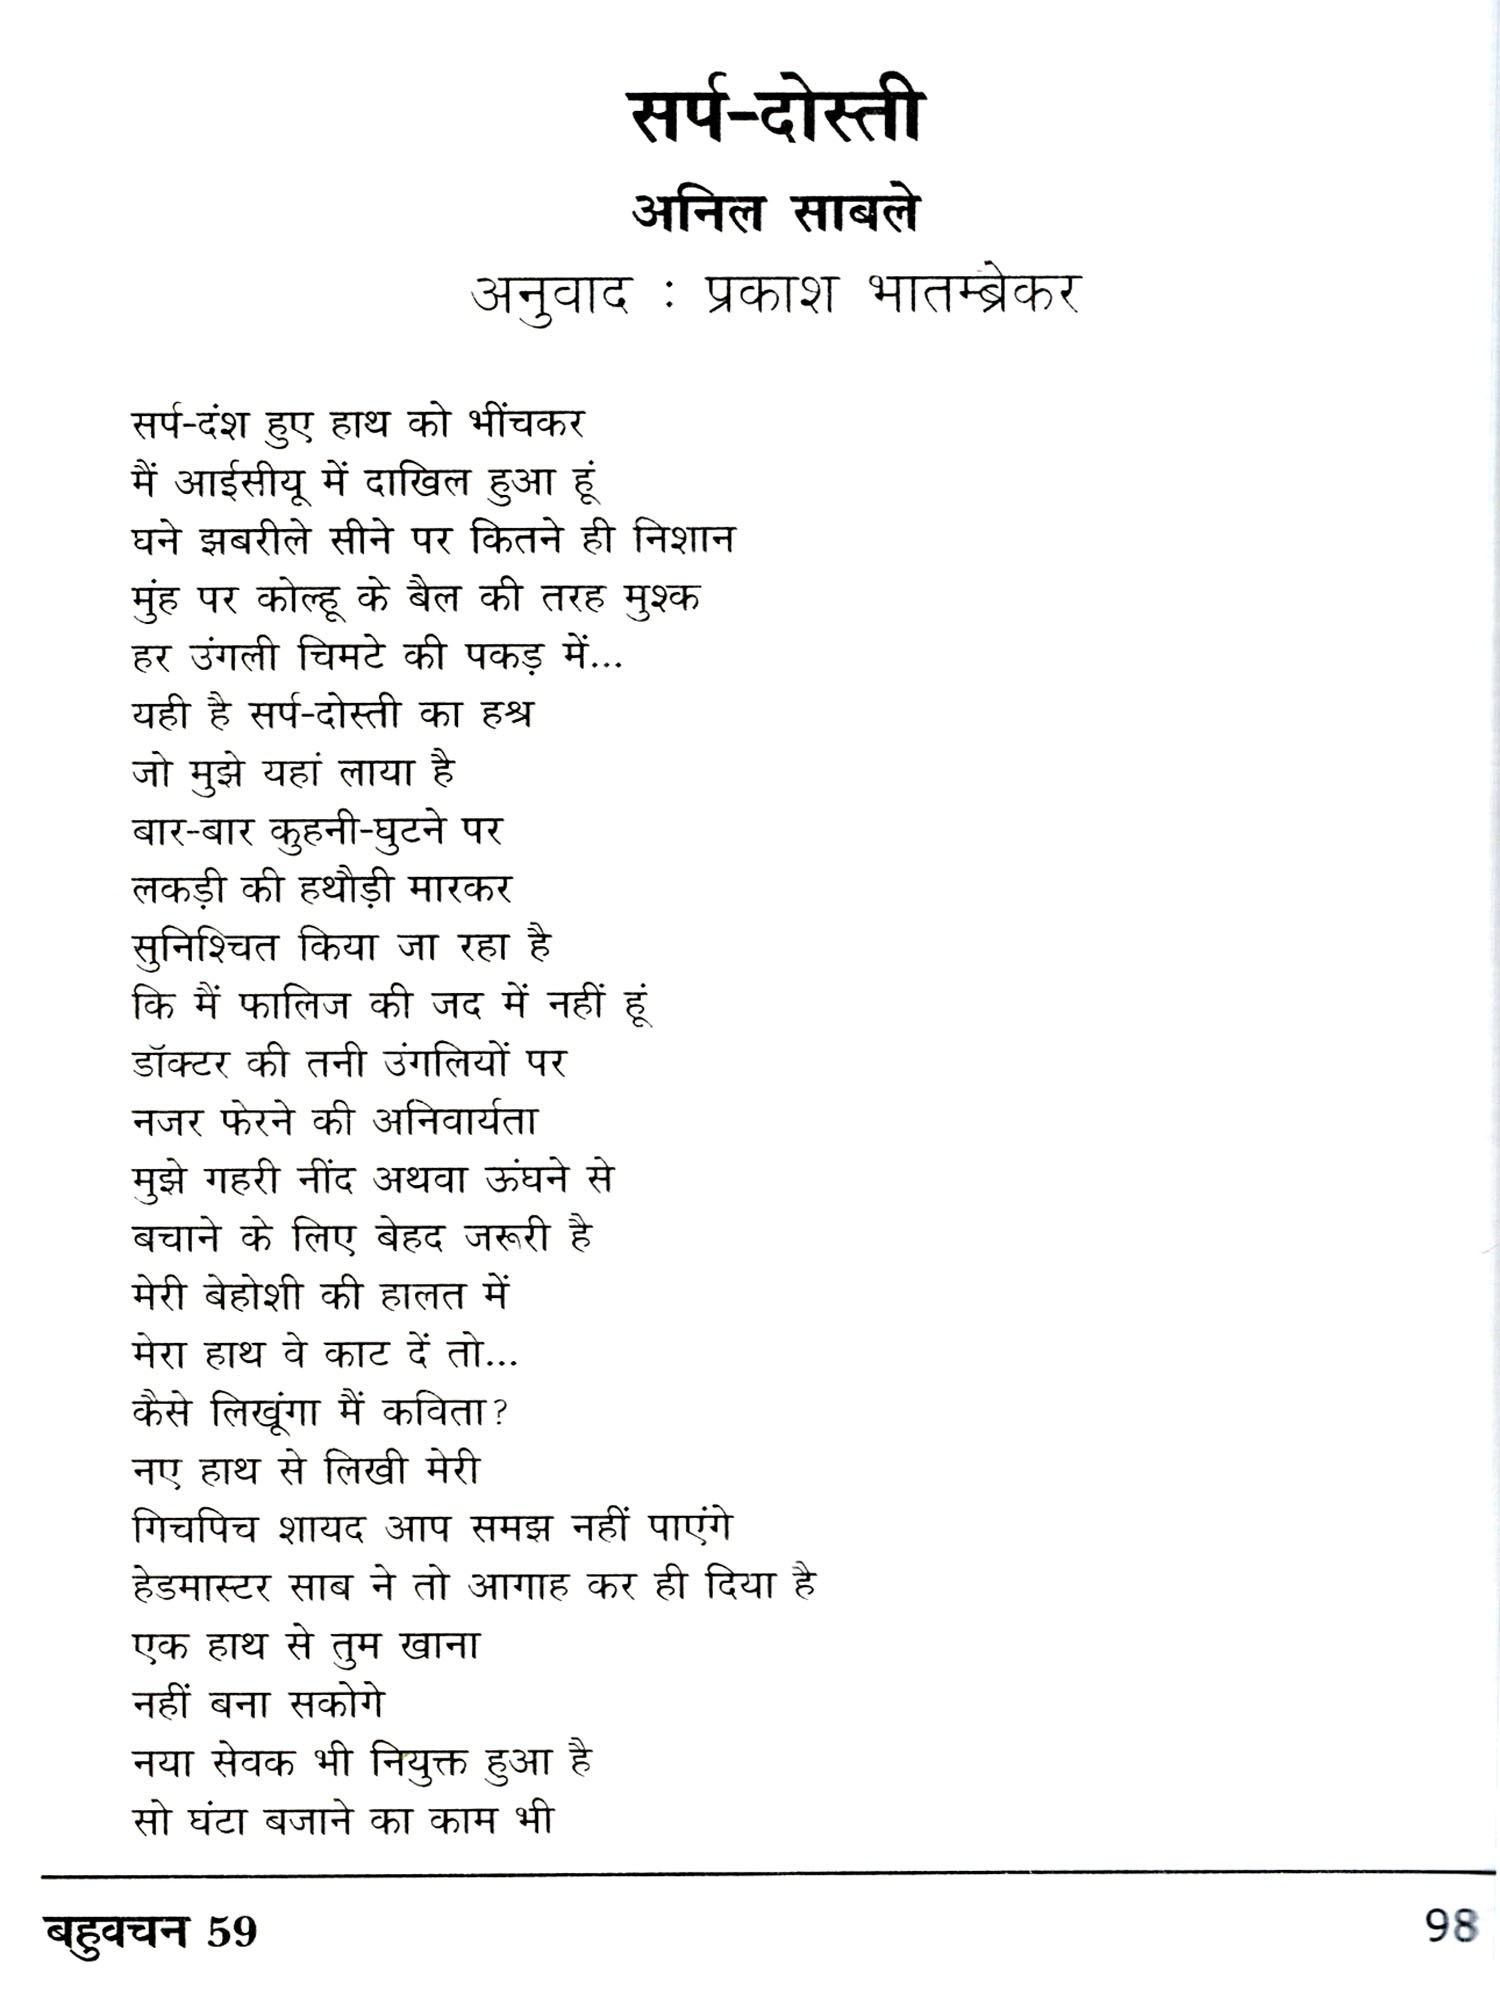 सर्प-दोस्ती
अनिल साबले
अनुवाद : प्रकाश भातम्ब्रेकर
सर्प-दंश हुए हाथ को भींचकर
मैं आईसीयू में दाखिल हुआ हूं
घने झबरीले सीने पर कितने ही निशान
मुंह पर कोल्हू के बैल की तरह मुश्क
हर उंगली चिमटे की पकड़ में...
यही है सर्प-दोस्ती का हश्र
जो मुझे यहां लाया है
बार-बार कुहनी-घुटने पर
लकड़ी की हथौड़ी मारकर
सुनिश्चित किया जा रहा है
कि मैं फालिज की जद में नहीं हूं
डॉक्टर की तनी उंगलियों पर
नजर फेरने की अनिवार्यता
मुझे गहरी नींद अथवा ऊंघने से
बचाने के लिए बेहद जरूरी है
मेरी बेहोशी की हालत में
मेरा हाथ वे काट दें तो...
कैसे लिखूंगा मैं कविता?
नए हाथ से लिखी मेरी
गिचपिच शायद आप समझ नहीं पाएंगे
हेडमास्टर साब ने तो आगाह कर ही दिया है
एक हाथ से तुम खाना
नहीं बना सकोगे
नया सेवक भी नियुक्त हुआ है
सो घंटा बजाने का काम भी
बहुवचन 59
98